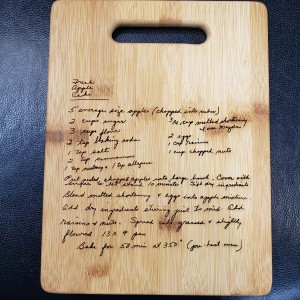 Fresh
Apple
Cake
5 average size apples (chopped into cubes)
2 cups sugar
3/4 cup melted shortening
3 cups flour
(use Margarine)
2 tsp baking soda
2 eggs
1 tsp salt
1 cup raisins
2 tsp cinnamon
1 cup chopped nuts
1 tsp nutmeg + 1 tsp allspice
Put peeled chopped apples into large bowl. Cover with
sugar let stand 10 minutes. Sift dry ingredients
Blend melted shortening + eggs into apple mixture.
Add dry ingredients stirring just to mix. Add
raisins + nuts. Spread into greased + slightly
floured 13 x 9 pan
Bake for 50 min at 350° (pre-heat oven)